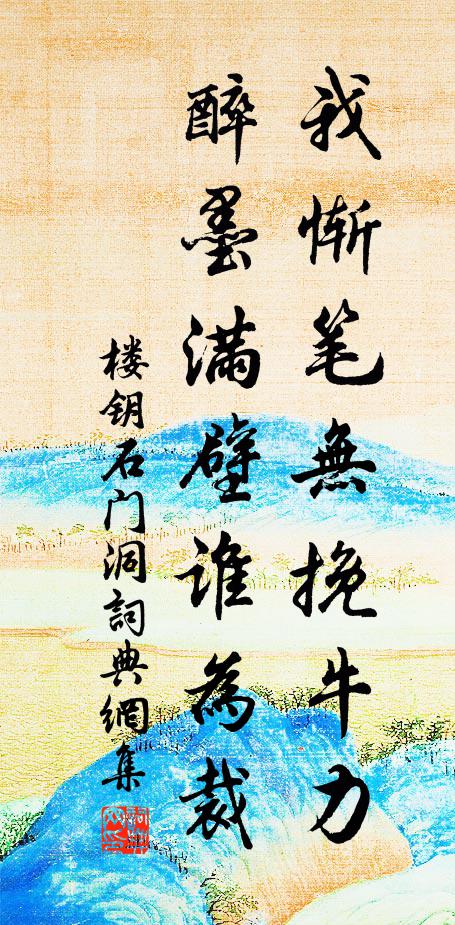 我惭笔無挽牛力
醉墨满壁谁為裁
楼钥石门洞詞典網集